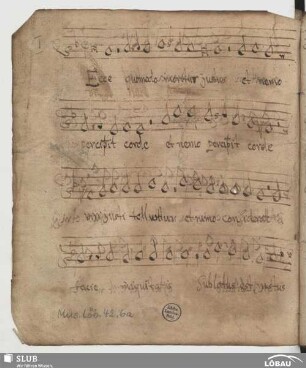 Ecce quomodo moritur justus et nemo
percipit corde et nemo percipit corde
viri justi tolluntur et nemo considerat
facie iniquitatis sublatus est justus
Mus. Löb. 42, 6a
SLUB
Wir führen Wissen.
LÖBAU